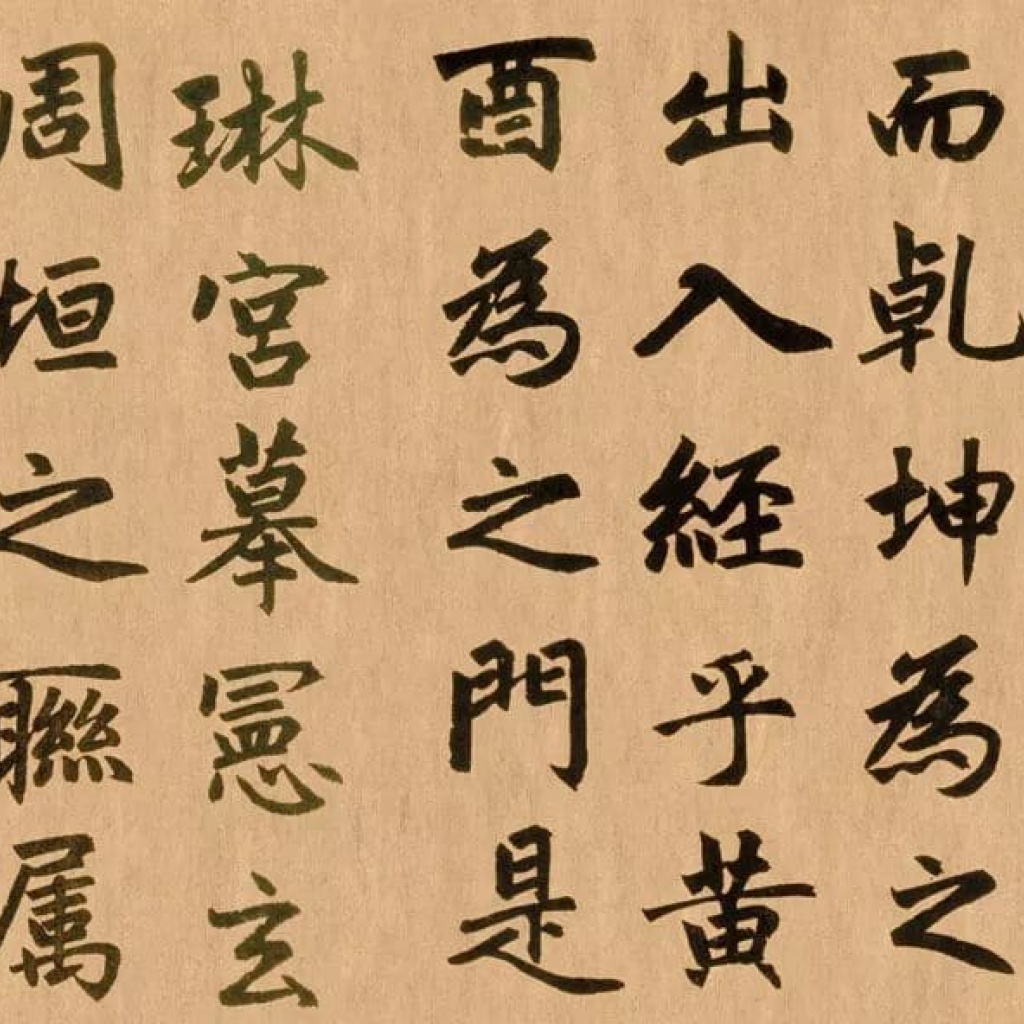 而乾坤為之
出入經乎黃
酉為之門是
琳宮摹憲玄
周垣之聯属